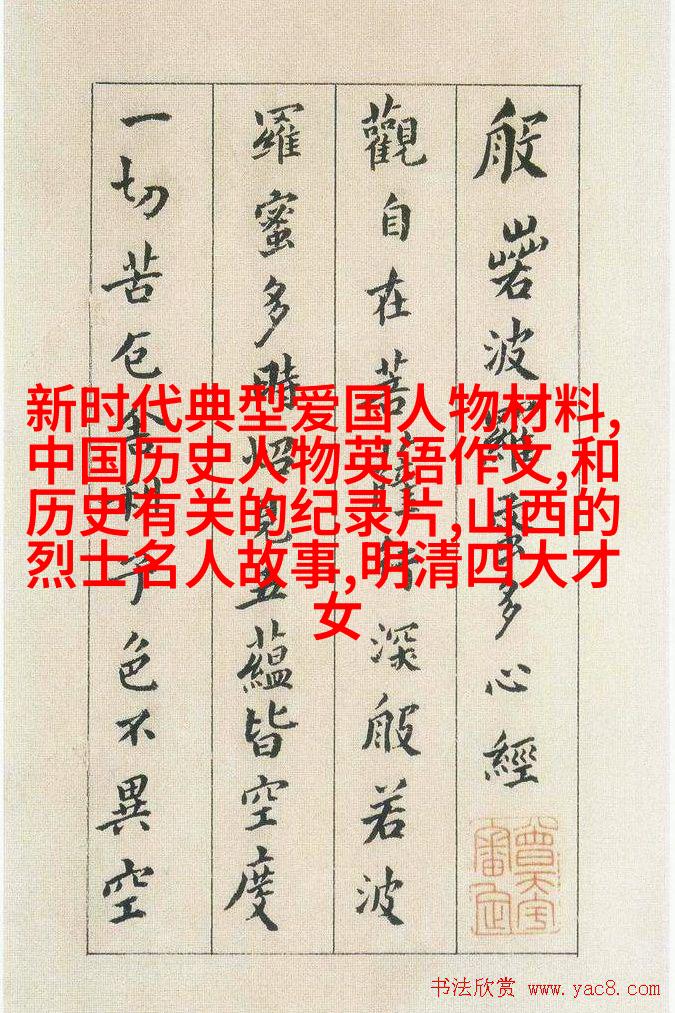 般若波羅蜜多心經
觀自在菩薩行深般若波
羅蜜多時照見五蘊皆空度
一切苦厄舍利子色不異空
新时代典型爱国人物材料,
中国历史人物英语作文,和
历史有关的纪录片,山西的
烈士名人故事,明清四大才
女
书法欣赏 www.yac8.com